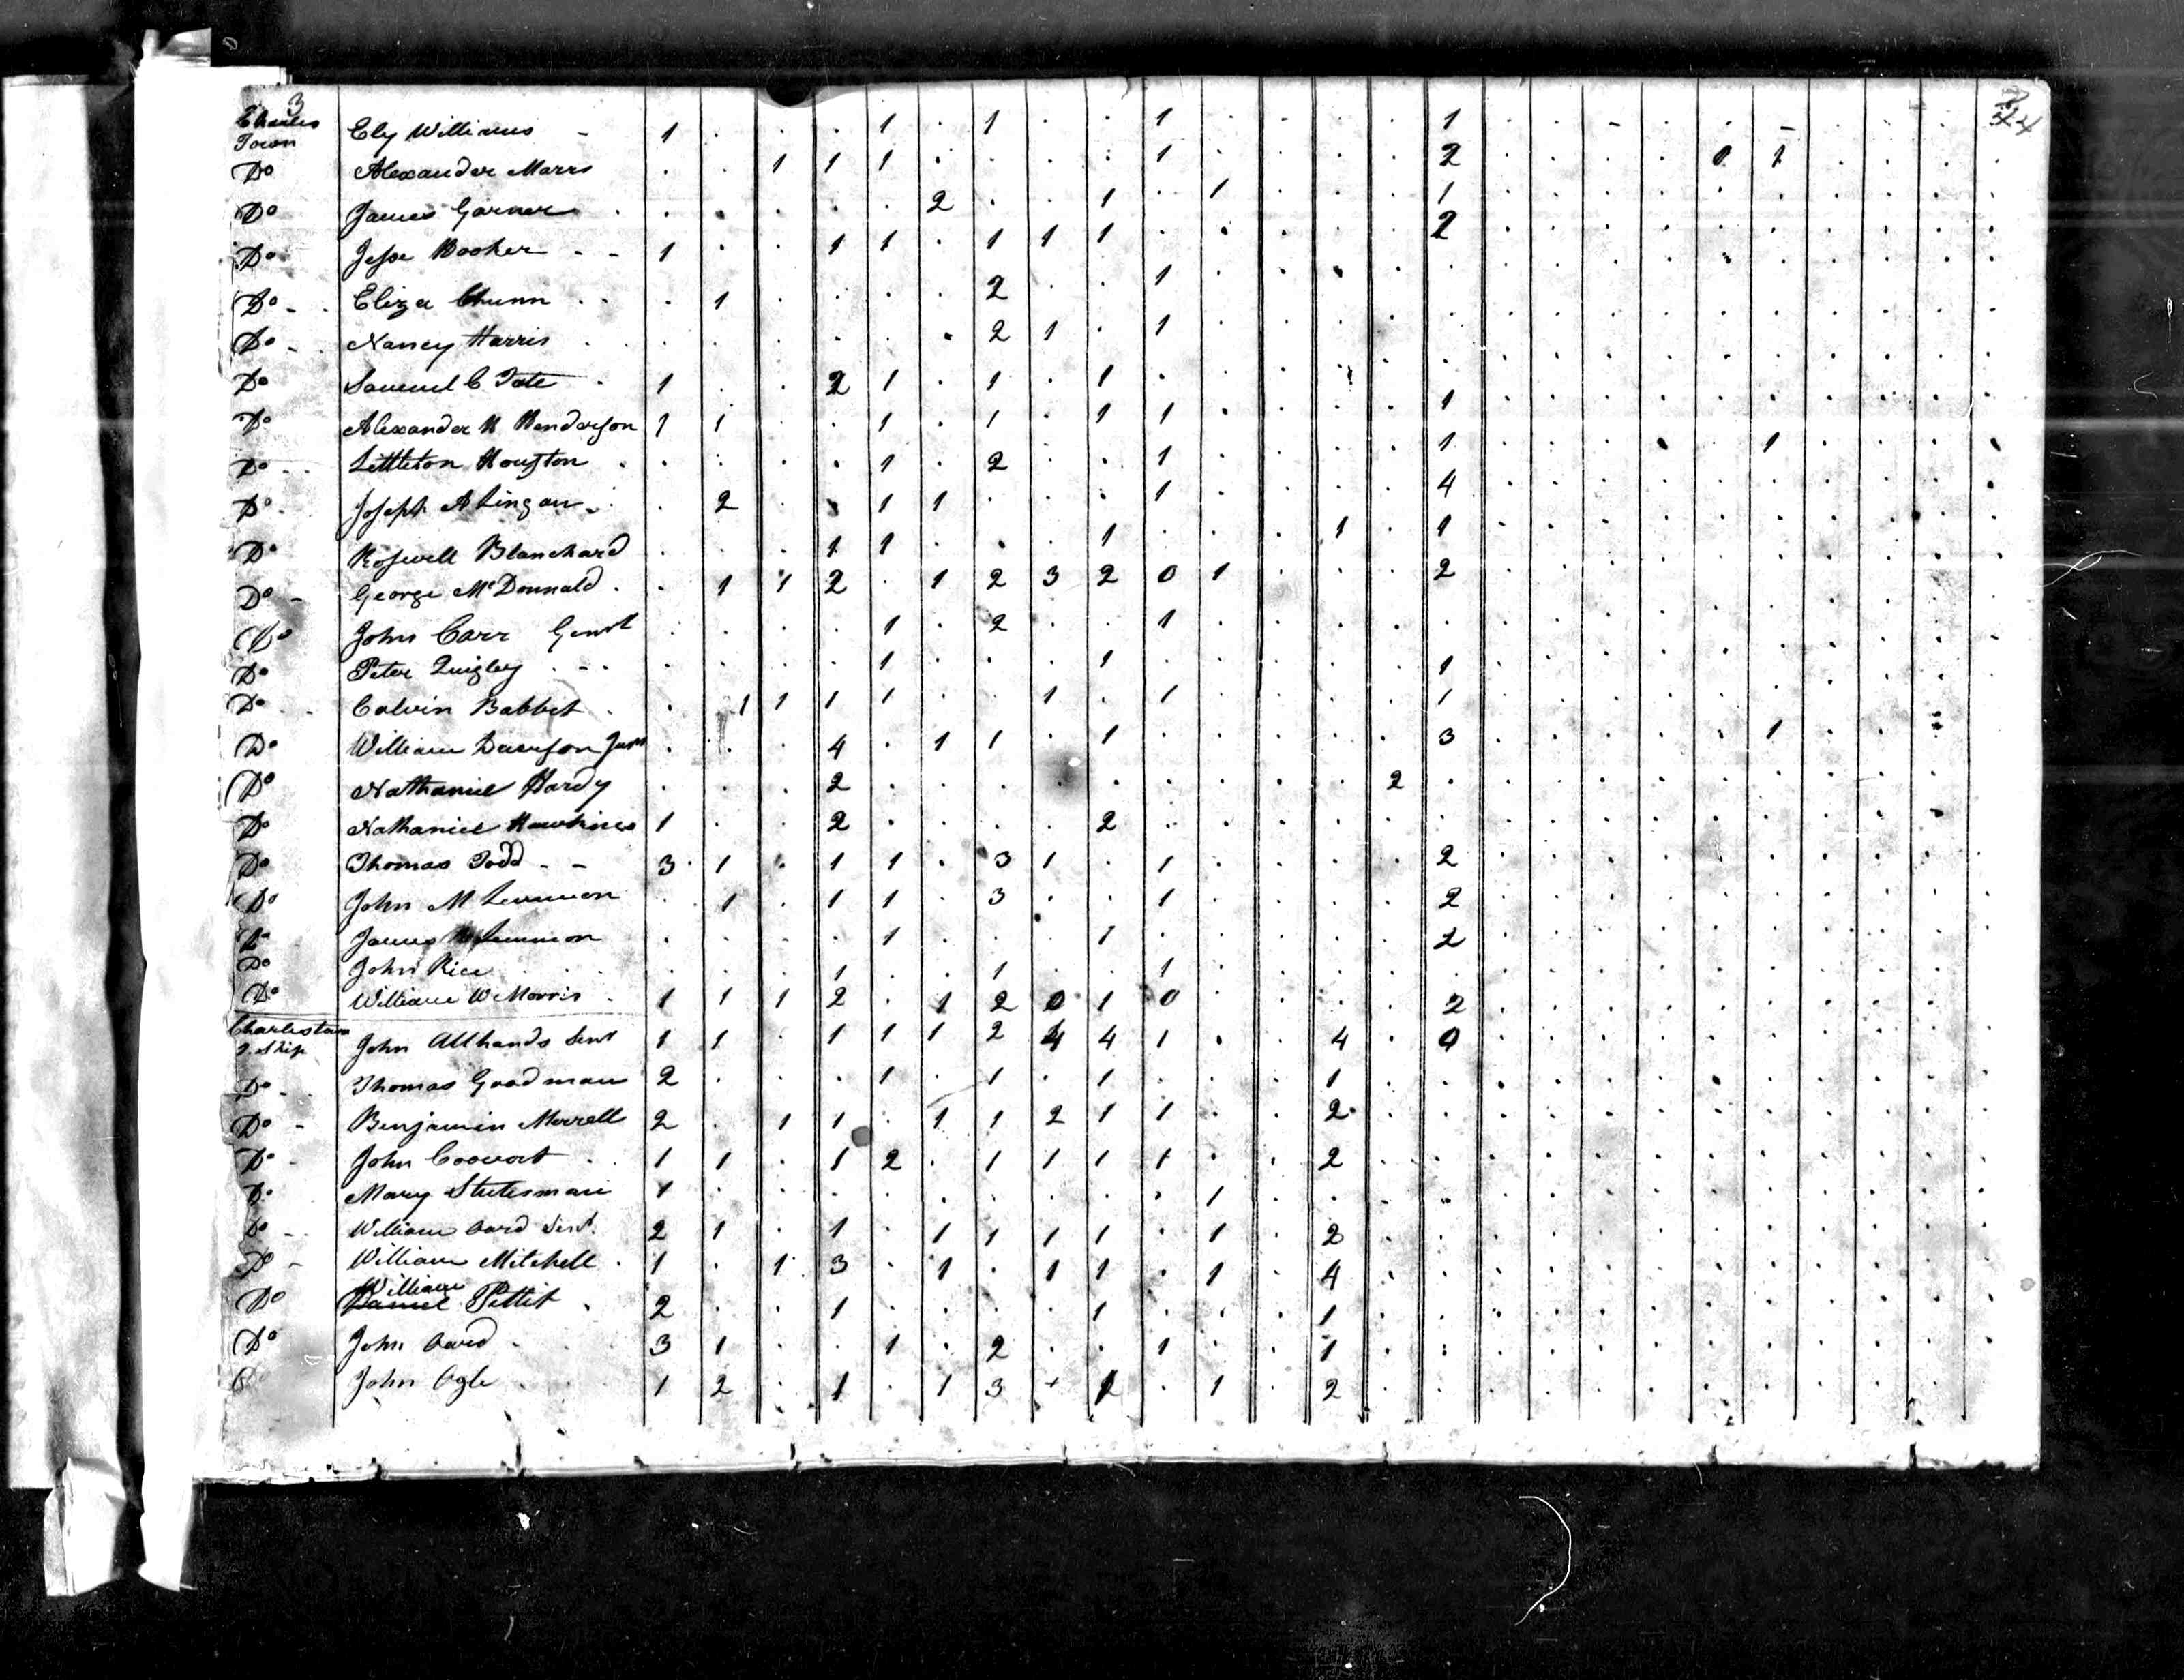 3
Charles
Town Ely Williams - 1 . . . 1 . 1 . . 1 . . . . 1 . . - . . - . . .
Do Alexander Marrs . . 1 1 1 . . . . 1 . . . . 2 . . . . 1 1 . . . .
Do James Garner . . . . . 2 . . 1 . 1 . . . 1
Do Jesse Booker - - 1 . . 1 1 . 1 1 1 . . . . . 2
Do - Eliza Chunn . 1 . . . . 2 . . 1
Do - Nancy Harris . . . . . . 2 1 . 1
Do Samuel C Tate 1 . . 2 1 . 1 . 1
Do Alexander Henderson 1 1 . . 1 . 1 . 1 1 . . . . 1
Do - Littleton Houston . . . . 1 . 2 . . 1 . . . . 1 . . . . . 1
Do - Joseph A Lingan . 2 . . 1 1 . . . 1 . . . . 4
Do Roswell Blanchard . . . 1 1 . . . 1 . . . 1 . 1
Do - George McDonnald . 1 1 2 . 1 2 3 2 0 1 . . . 2
Do John Carr Genrl . . . . 1 . 2 . . 1
Do Peter Quigley . . . . 1 . . . 1 . . . . . 1
Do Calvin Babbet . 1 1 1 1 . . 1 . 1 . . . . 1
Do William Dawson Junr . . . 4 . 1 1 . 1 . . . . . 3 . . . . . 1
Do Nathaniel Hardy . . . 2 . . . . . . . . . 2
Do Nathaniel Hawkins 1 . . 2 . . . . 2
Do Thomas Todd - - 3 1 . 1 1 . 3 1 . 1 . . . . 2
Do John M Lemmon . 1 . 1 1 . 3 . . 1 . . . . 2
Do James Lemmon . . . . 1 . . . 1 . . . . . 2
Do John Rice . . . 1 . . 1 . . 1
Do William W Morris 1 1 1 2 . 1 2 0 1 0 . . . . 2
Charlestown
T. Ship John Allhands Senr 1 1 . 1 1 1 2 4 4 1 . . 4 . 0
Do - Thomas Goodman 2 . . . 1 . 1 . 1 . . . 1
Do - Benjamin Morrell 2 . 1 1 . 1 1 2 1 1 . . 2
Do - John Coovert 1 1 . 1 2 . 1 1 1 1 . . 2
Do Mary Stutesman 1 . . . . . . . . . 1
Do - William Oard Senr. 2 1 . 1 . 1 1 1 1 . 1 . 2
Do - William Mitchell 1 . 1 3 . 1 . 1 1 . 1 . 4
William
Do Daniel Pettit 2 . . 1 . . . . 1 . . . 1
Do John Oard 3 1 . . 1 . 2 . . 1 . . 1
John Ogle 1 2 . 1 . 1 3 . 1 . 1 . 2